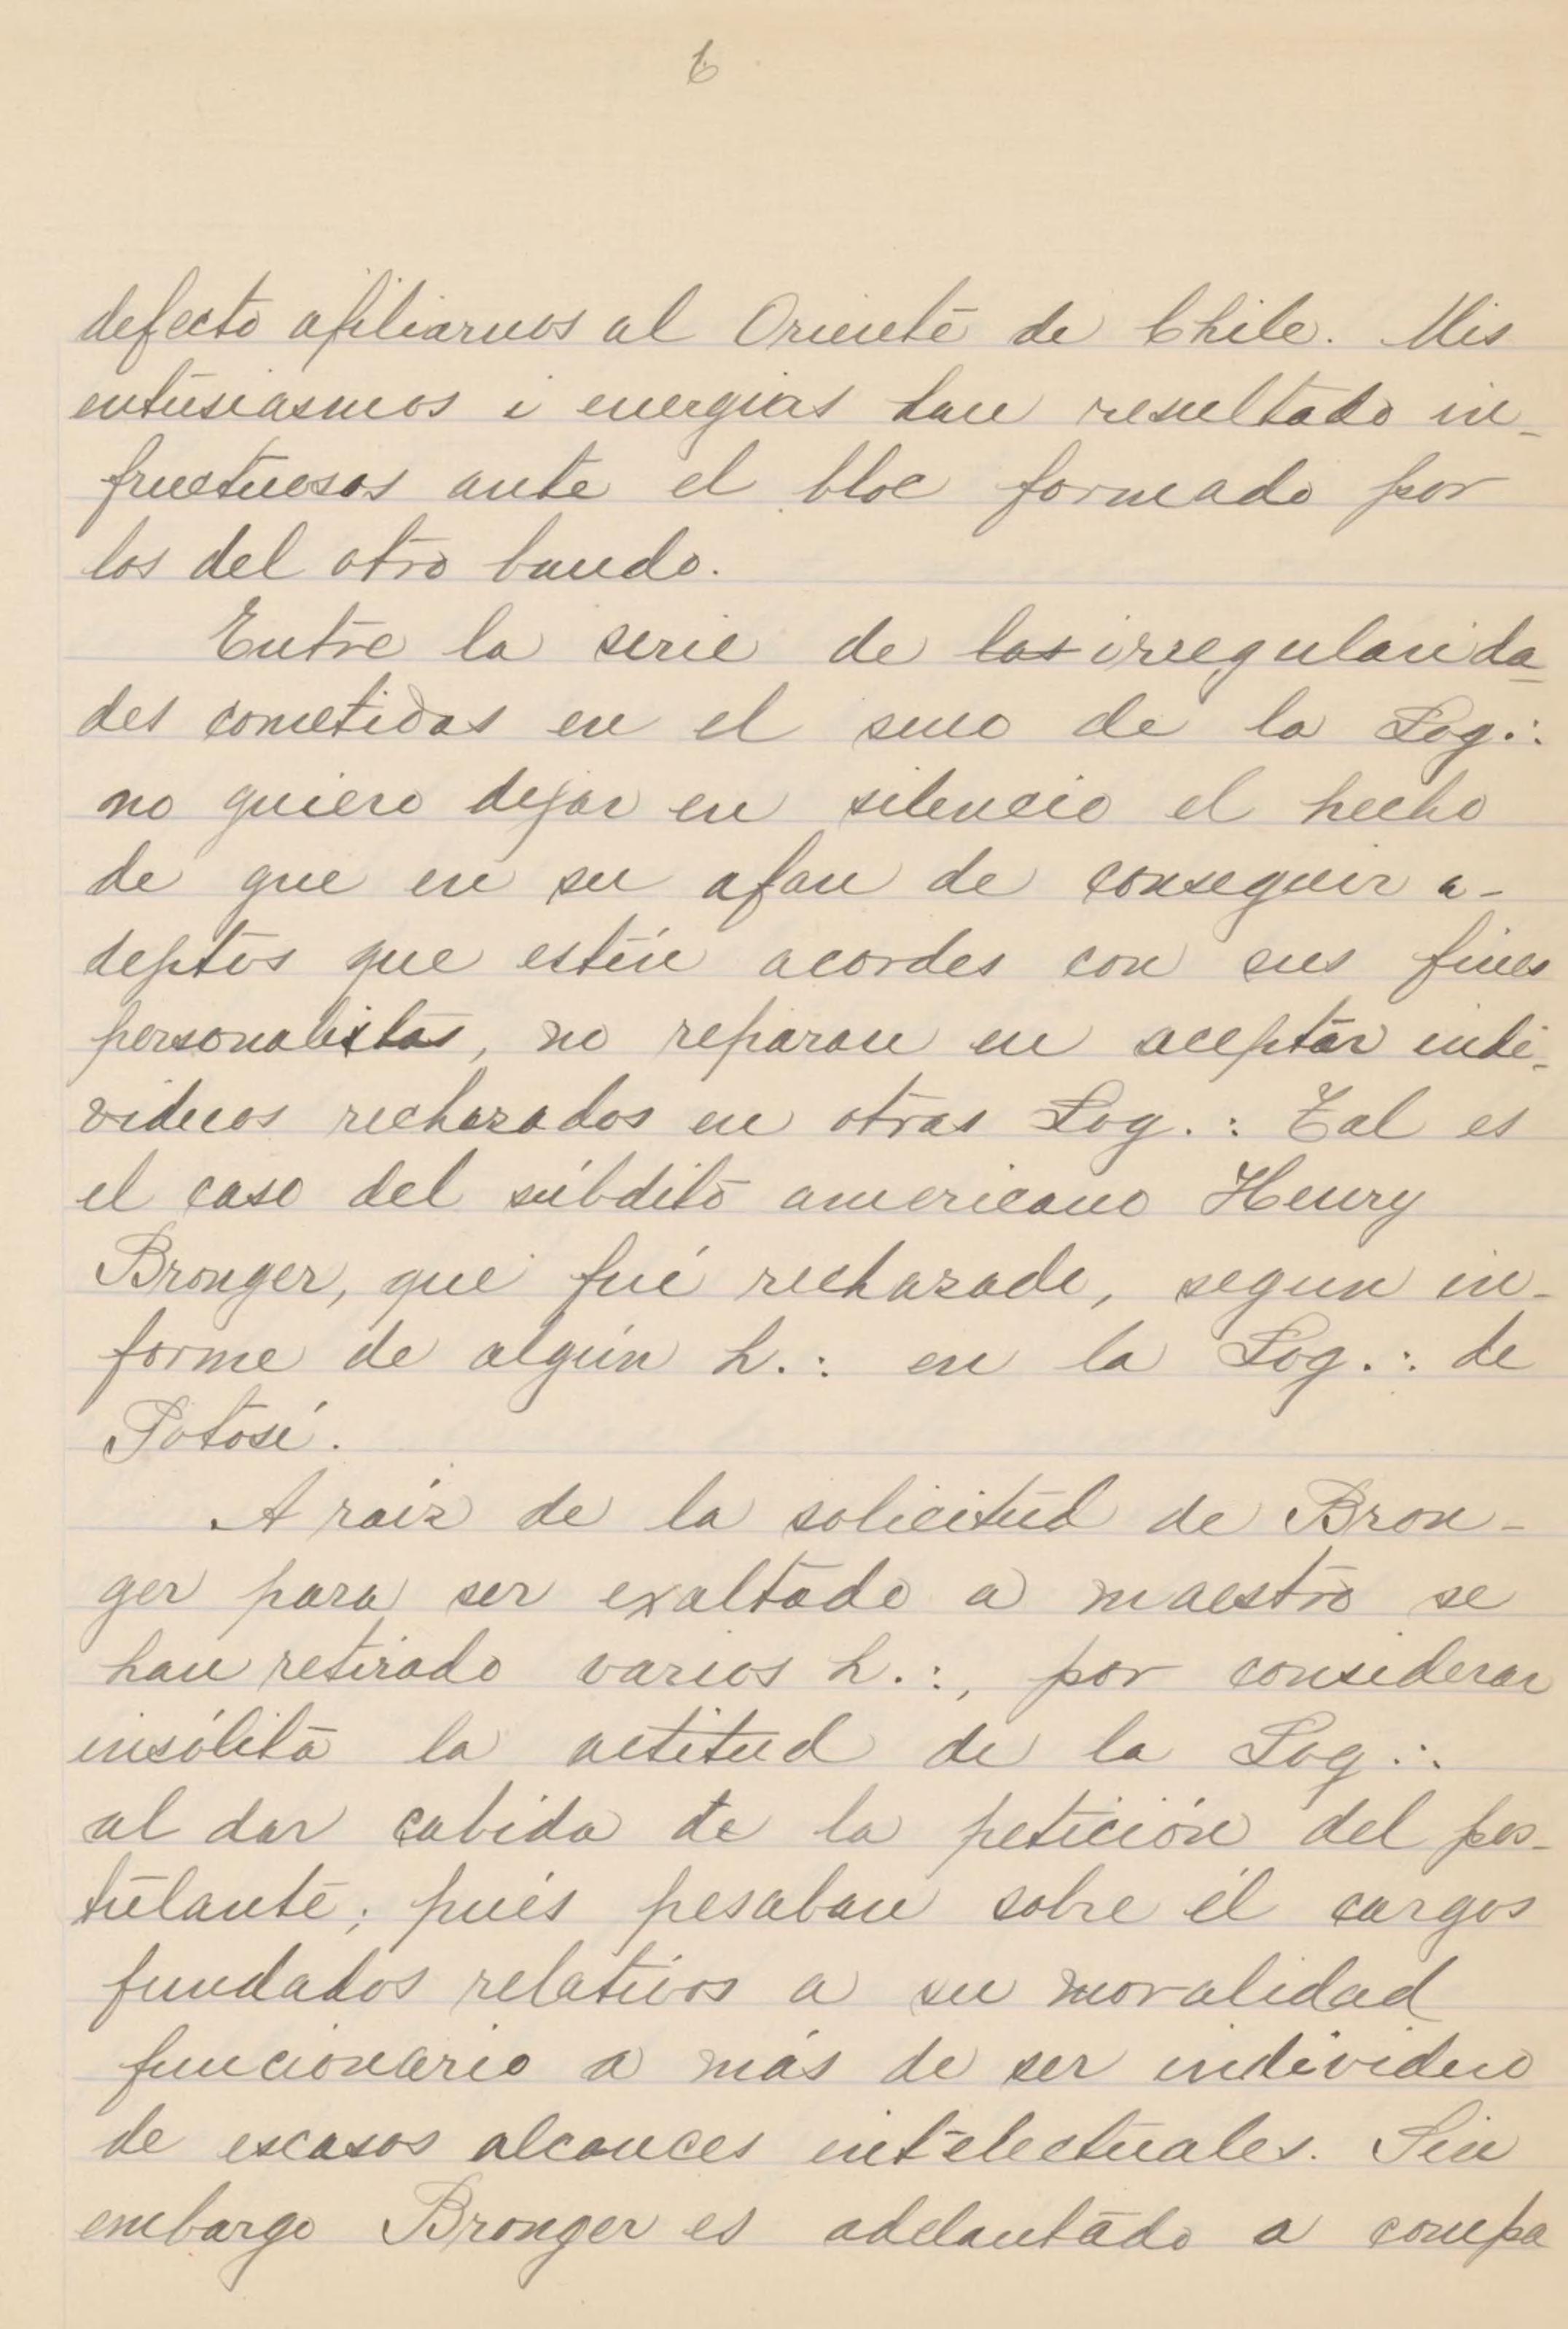 6
defecto afiliarnos al Oriente de Chile. Mis
entusiasmos i energias han resultado in-
fructuosos ante el bloc formado por
los del otro bando.
Entre la serie de las irregularida-
des cometidas en el seno de la Log.:
no quiero dejar en silencio el hecho
de que en su afan de conseguir a-
deptos que estén acordes con sus fines
personalistas, no reparan en aceptar indi-
viduos rechazados en otras Log.: Tal es
el caso del súbdito americano Henry
Bronger, que fué rechazado, segun in-
forme de algún h.: en la Log.: de
Potosí.
A raíz de la solicitud de Bron-
ger para ser exaltado a maestro se
han retirado varios h.:, por considerar
insólita la actitud de la Log.:
al dar cabida de la petición del pos-
tulante; pués pesaban sobre él cargos
fundados relativos a su moralidad
funcionario a más de ser individuo
de escasos alcances intelectuales. Sin
embargo Bronger es adelantado a compa